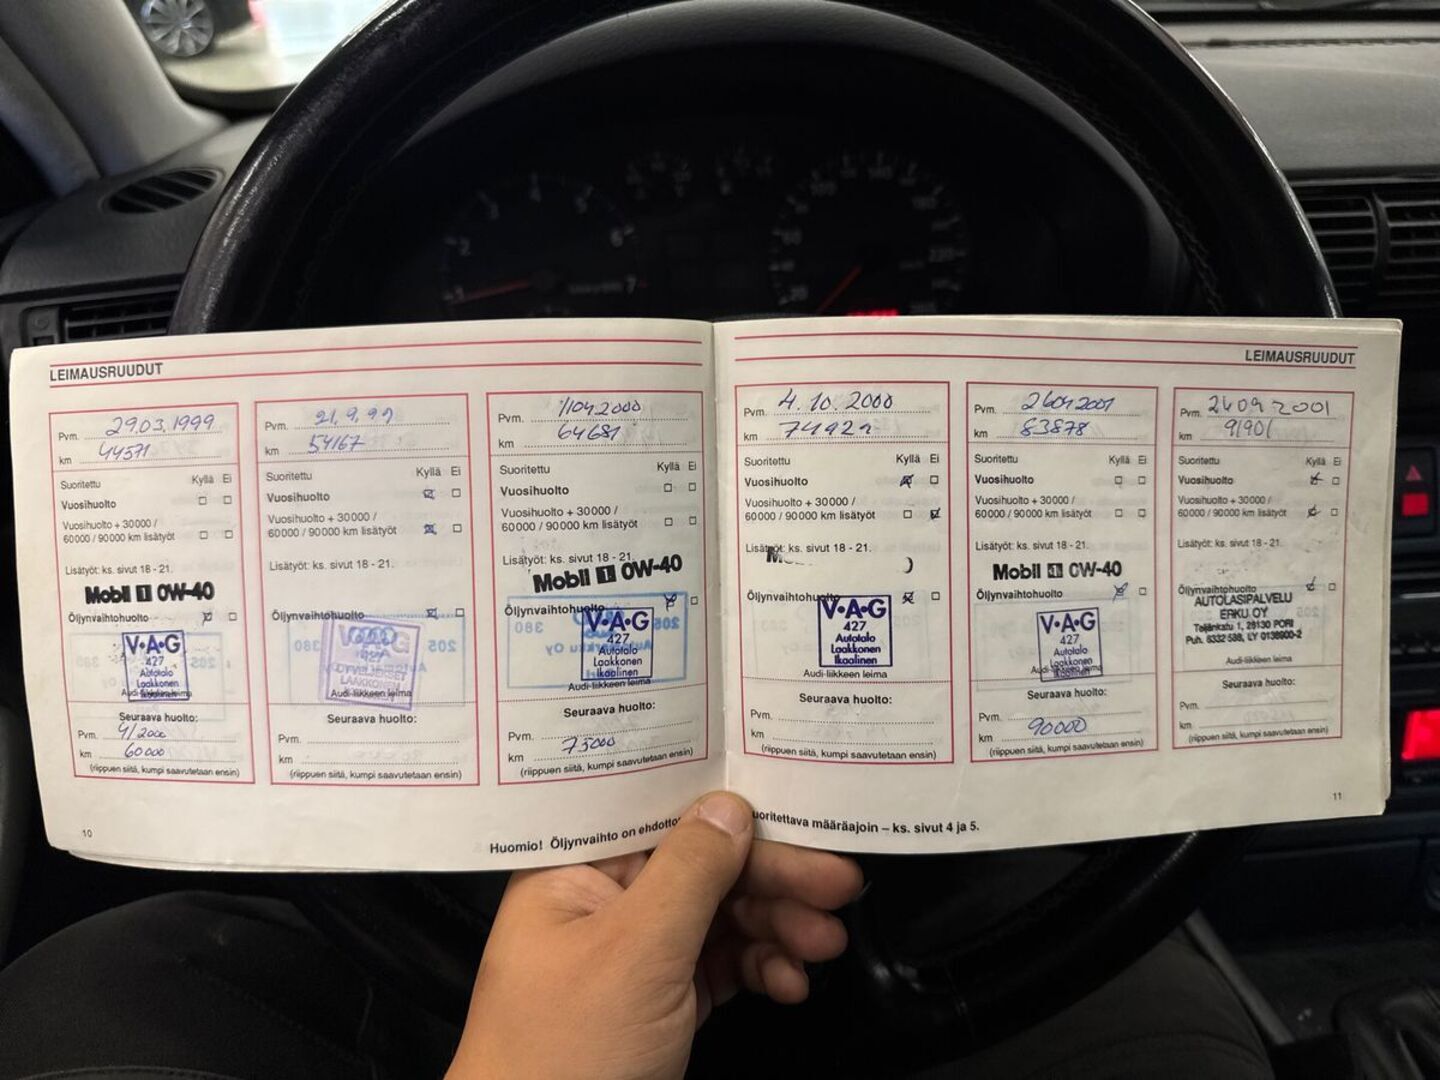 LEIMAUSRUUDUT
Pvm. 29.03.1999
km 44571
Suoritettu Kyllä Ei
Vuosihuolto
Vuosihuolto + 30000 /
60000 / 90000 km lisätyöt
Lisätyöt: ks. sivut 18 - 21.
Mobil 1 0W-40
Öljynvaihtohuolto
V•A•G
427
Autotalo
Laakkonen
Ikaalinen
Audi-liikkeen leima
Seuraava huolto:
Pvm. 4/2000
km 60000
(riippuen siitä, kumpi saavutetaan ensin)
10
Pvm. 21.9.99
km 54167
Suoritettu Kyllä Ei
Vuosihuolto
Vuosihuolto + 30000 /
60000 / 90000 km lisätyöt
Lisätyöt: ks. sivut 18 - 21.
Öljynvaihtohuolto
V•A•G
427
LAAKKONEN
Audi-liikkeen leima
Seuraava huolto:
Pvm.
km
(riippuen siitä, kumpi saavutetaan ensin)
Pvm. 11.04.2000
km 64681
Suoritettu Kyllä Ei
Vuosihuolto
Vuosihuolto + 30000 /
60000 / 90000 km lisätyöt
Lisätyöt: ks. sivut 18 - 21.
Mobil 1 0W-40
Öljynvaihtohuolto
V•A•G
427
Autotalo
Laakkonen
Ikaalinen
Audi-liikkeen leima
Seuraava huolto:
Pvm.
km 75000
(riippuen siitä, kumpi saavutetaan ensin)
Huomio! Öljynvaihto on
LEIMAUSRUUDUT
Pvm. 4.10.2000
km
Suoritettu Kyllä Ei
Vuosihuolto
Vuosihuolto + 30000 /
60000 / 90000 km lisätyöt
Lisätyöt: ks. sivut 18 - 21.
Öljynvaihtohuolto
V•A•G
427
Autotalo
Laakkonen
Ikaalinen
Audi-liikkeen leima
Seuraava huolto:
Pvm.
km
(riippuen siitä, kumpi saavutetaan ensin)
Pvm. 26042001
km 83878
Suoritettu Kyllä Ei
Vuosihuolto
Vuosihuolto + 30000 /
60000 / 90000 km lisätyöt
Lisätyöt: ks. sivut 18 - 21.
Mobil 1 0W-40
Öljynvaihtohuolto
V•A•G
427
Autotalo
Laakkonen
Ikaalinen
Audi-liikkeen leima
Seuraava huolto:
Pvm.
km 90000
(riippuen siitä, kumpi saavutetaan ensin)
Pvm. 24092001
km 91901
Suoritettu Kyllä Ei
Vuosihuolto
Vuosihuolto + 30000 /
60000 / 90000 km lisätyöt
Lisätyöt: ks. sivut 18 - 21.
Öljynvaihtohuolto
AUTOLASIPALVELU
ERKU OY
Puh. 6332 588, LY 0138900-2
Audi-liikkeen leima
Seuraava huolto:
Pvm.
km
(riippuen siitä, kumpi saavutetaan ensin)
määräajoin – ks. sivut 4 ja 5.
11